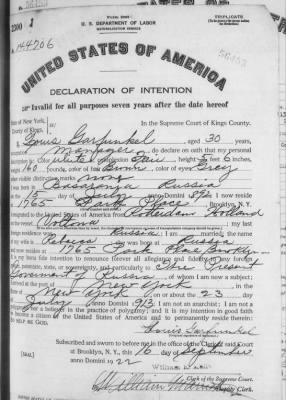 TRIPLICATE
U. S. DEPARTMENT OF LABOR
NATURALIZATION SERVICE
144706
UNITED STATES OF AMERICA
DECLARATION OF INTENTION
Invalid for all purposes seven years after the date hereof
State of New York,
County of Kings,
In the Supreme Court of Kings County.
Louis Garfunkel, aged 30 years,
occupation Manager, do declare on oath that my personal
description is: Color white, complexion Fair, height 5 feet 6 inches,
weight 160 pounds, color of hair Brown, color of eyes Grey
other visible distinctive marks none
I was born in Russia
on the 15 day of July, anno Domini 1892; I now reside
at 1765 Park Place, Brooklyn, N.Y.
I emigrated to the United States of America from Rotterdam Holland
on the vessel
foreign residence was Russia; I am married; the name
of my wife is Rebecca; she was born at Russia
and now resides at 1765 Park Place Brooklyn
It is my bona fide intention to renounce forever all allegiance and fidelity to any foreign
prince, potentate, state, or sovereignty, and particularly to The Present
Government of Russia, of whom I am now a subject;
I arrived at the port of New York, in the
State of New York, on or about the 23 day
of July, anno Domini 1913; I am not an anarchist; I am not a
polygamist nor a believer in the practice of polygamy; and it is my intention in good faith
to become a citizen of the United States of America and to permanently reside therein:
SO HELP ME GOD.
Louis Garfunkel
Subscribed and sworn to before me in the office of the Clerk of said Court
at Brooklyn, N. Y., this 16 day of September
anno Domini 1922
[SEAL]
Clerk of the Supreme Court.